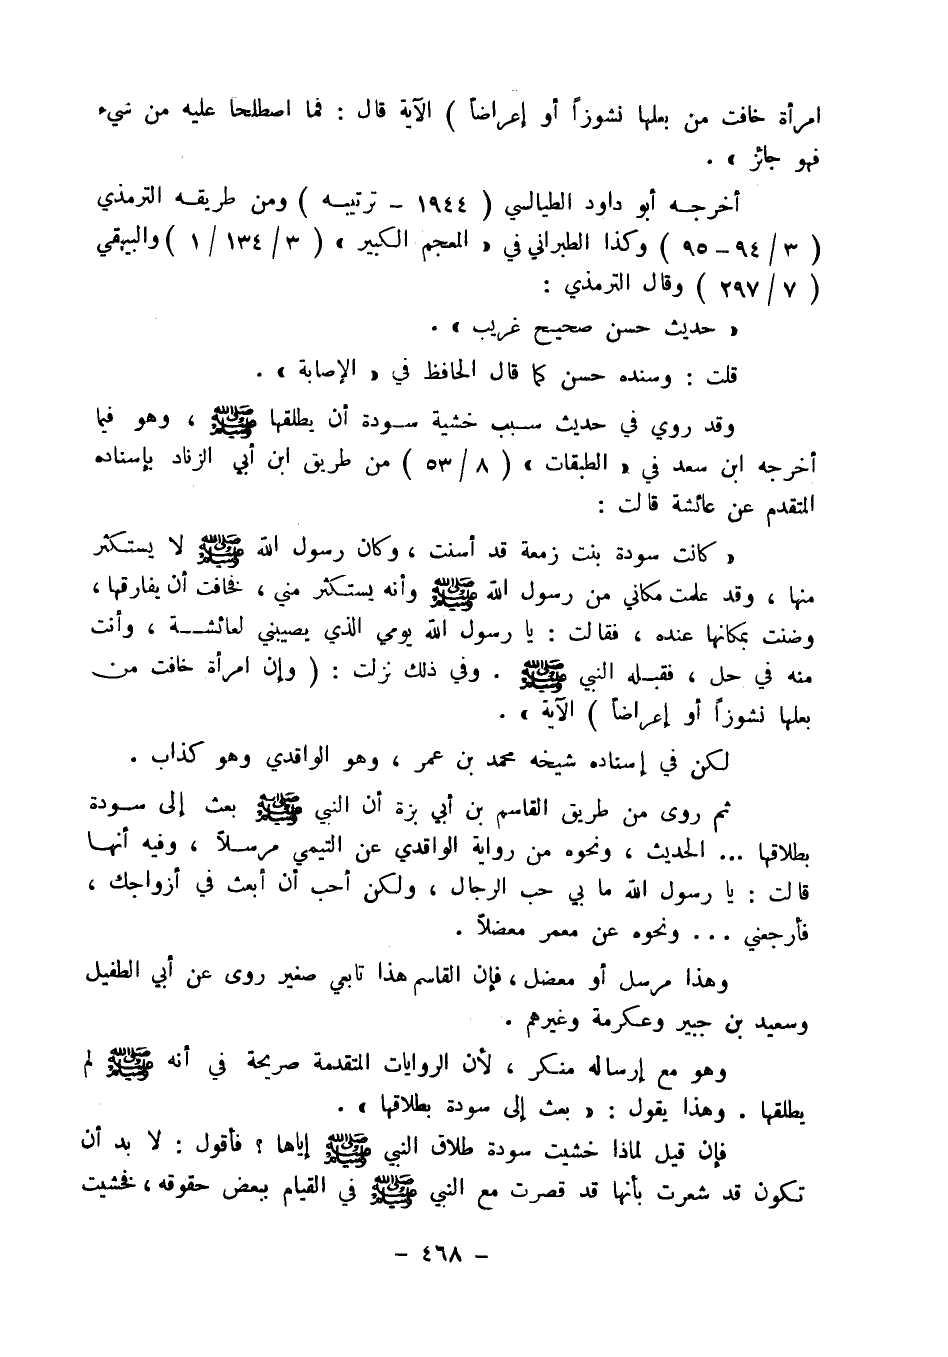 امرأة خافت من بعلها نشوزاً أو إعراضاً ) الآية قال : فما اصطلحا عليه من شيء
فهو جائز » .
أخرجـه أبو داود الطيالسي ( ١٩٤٤ - ترتيبـه ) ومن طريقـه الترمذي
( ٣ / ٩٤ - ٩٥ ) وكذا الطبراني في « المعجم الكبير » ( ٣ / ١٣٤ / ١ ) والبيهقي
( ٧ / ٢٩٧ ) وقال الترمذي :
« حديث حسن صحيح غريب » .
قلت : وسنده حسن كما قال الحافظ في « الإصابة » .
وقد روي في حديث سـبب خشية سـودة أن يطلقها ﷺ ، وهو فيما
أخرجه ابن سعد في « الطبقات » ( ٨ / ٥٣ ) من طريق ابن أبي الزناد بإسناده
المتقدم عن عائشة قالت :
« كانت سودة بنت زمعة قد أسنت ، وكان رسول الله ﷺ لا يستكثر
منها ، وقد علمت مكاني من رسول الله ﷺ وأنه يستكثر مني ، فخافت أن يفارقها ،
وضنت بمكانها عنده ، فقالت : يا رسول الله يومي الذي يصيبني لعائشـة ، وأنت
منه في حل ، فقبـله النبي ﷺ . وفي ذلك نزلت : ( وإن امرأة خافت من
بعلها نشوزاً أو إعراضاً ) الآية » .
لكن في إسناده شيخه محمد بن عمر ، وهو الواقدي وهو كذاب .
ثم روى من طريق القاسم بن أبي بزة أن النبي ﷺ بعث إلى سـودة
بطلاقها ... الحديث ، ونحوه من رواية الواقدي عن التيمي مرسـلاً ، وفيه أنهـا
قالت : يا رسول الله ما بي حب الرجال ، ولكن أحب أن أبعث في أزواجك ،
فأرجعني ... ونحوه عن معمر معضلاً .
وهذا مرسل أو معضل ، فإن القاسم هذا تابعي صغير روى عن أبي الطفيل
وسعيد بن جبير وعكرمة وغيرهم .
وهو مع إرساله منكر ، لأن الروايات المتقدمة صريحة في أنه ﷺ لم
يطلقها . وهذا يقول : « بعث إلى سودة بطلاقها » .
فإن قيل لماذا خشيت سودة طلاق النبي ﷺ إياها ؟ فأقول : لا بد أن
تكون قد شعرت بأنها قد قصرت مع النبي ﷺ في القيام ببعض حقوقه ، فخشيت
- ٤٦٨ -